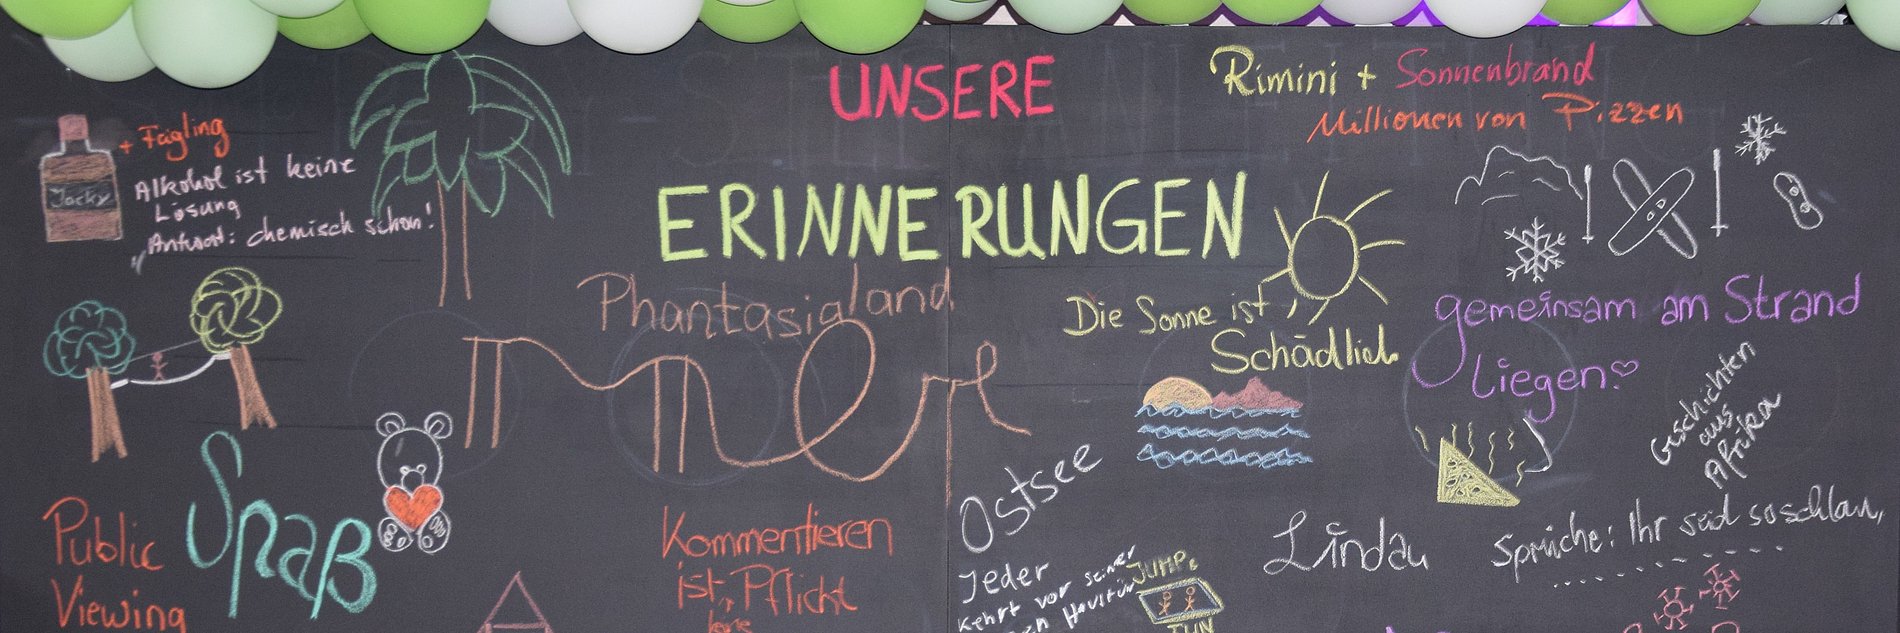 UNSERE
ERINNERUNGEN
Rimini + Sonnenbrand
Millionen von Pizzen
+ Feigling
Jacky
Alkohol ist keine
Lösung
Antwort: chemisch schon!
Phantasialand
Die Sonne ist
Schädlich
gemeinsam am Strand
Liegen
Geschichten
aus
Afrika
Spaß
Public
Viewing
Kommentieren
ist Pflicht
Ostsee
Lindau
Sprüche: Ihr seid so schlau,
Jeder
kehrt vor seiner
Haustür
JUMP
FUN